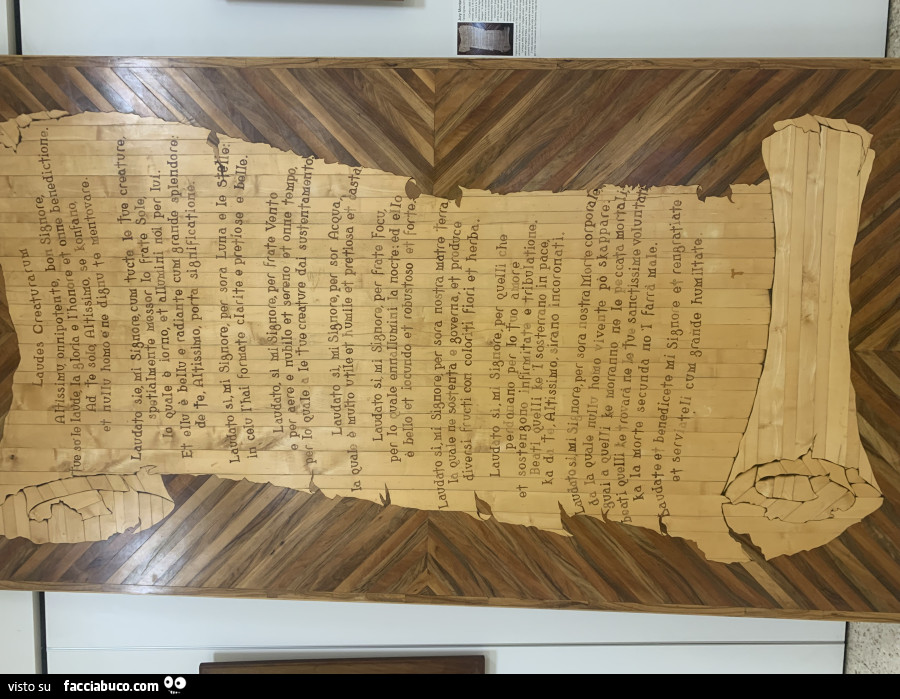 Laudes Creaturarum
Altissimu onnipotente, bon Signore,
Tue so le laude, la gloria e l'honore et onne benedictione.
Ad Te solo, Altissimo, se konfano,
et nullu homo ene dignu te mentovare.
Laudato sie, mi Signore, cum tucte le tue creature,
spetialmente messor lo frate Sole,
lo quale è iorno, et allumini noi per lui.
Et ellu è bellu e radiante cum grande splendore:
de Te, Altissimo, porta significatione.
Laudato si, mi Signore, per sora Luna e le Stelle:
in celu l'hai formate clarite e pretiose e belle.
Laudato si, mi Signore, per frate Vento
e per aere e nubilo et sereno et onne tempo,
per lo quale a le tue creature dai sustentamento.
Laudato si, mi Signore, per sor Acqua,
la quale è multo utile et humile et pretiosa et casta.
Laudato si, mi Signore, per frate Focu,
per lo quale ennallumini la nocte: ed ello
è bello et iocundo et robustoso et forte.
Laudato si, mi Signore, per sora nostra matre Terra,
la quale ne sostenta e governa, et produce
diversi fructi con coloriti fiori et herba.
Laudato si, mi Signore, per quelli che
perdonano per lo Tuo amore
et sostengono infirmitate e tribulatione.
Beati quelli ke 'l sosterrano in pace,
ka da Ti, Altissimo, sirano incoronati.
Laudato si, mi Signore, per sora nostra Morte corporale,
da la quale nullu homo vivente pò skappare:
guai a quelli ke morranno ne le peccata mortali;
beati quelli ke trovarà ne le Tue sanctissime voluntati,
ka la morte secunda no 'l farrà male.
Laudate et benedicete mi Signore et rengratiate
et serviateli cum grande humilitate.
visto su facciabuco.com